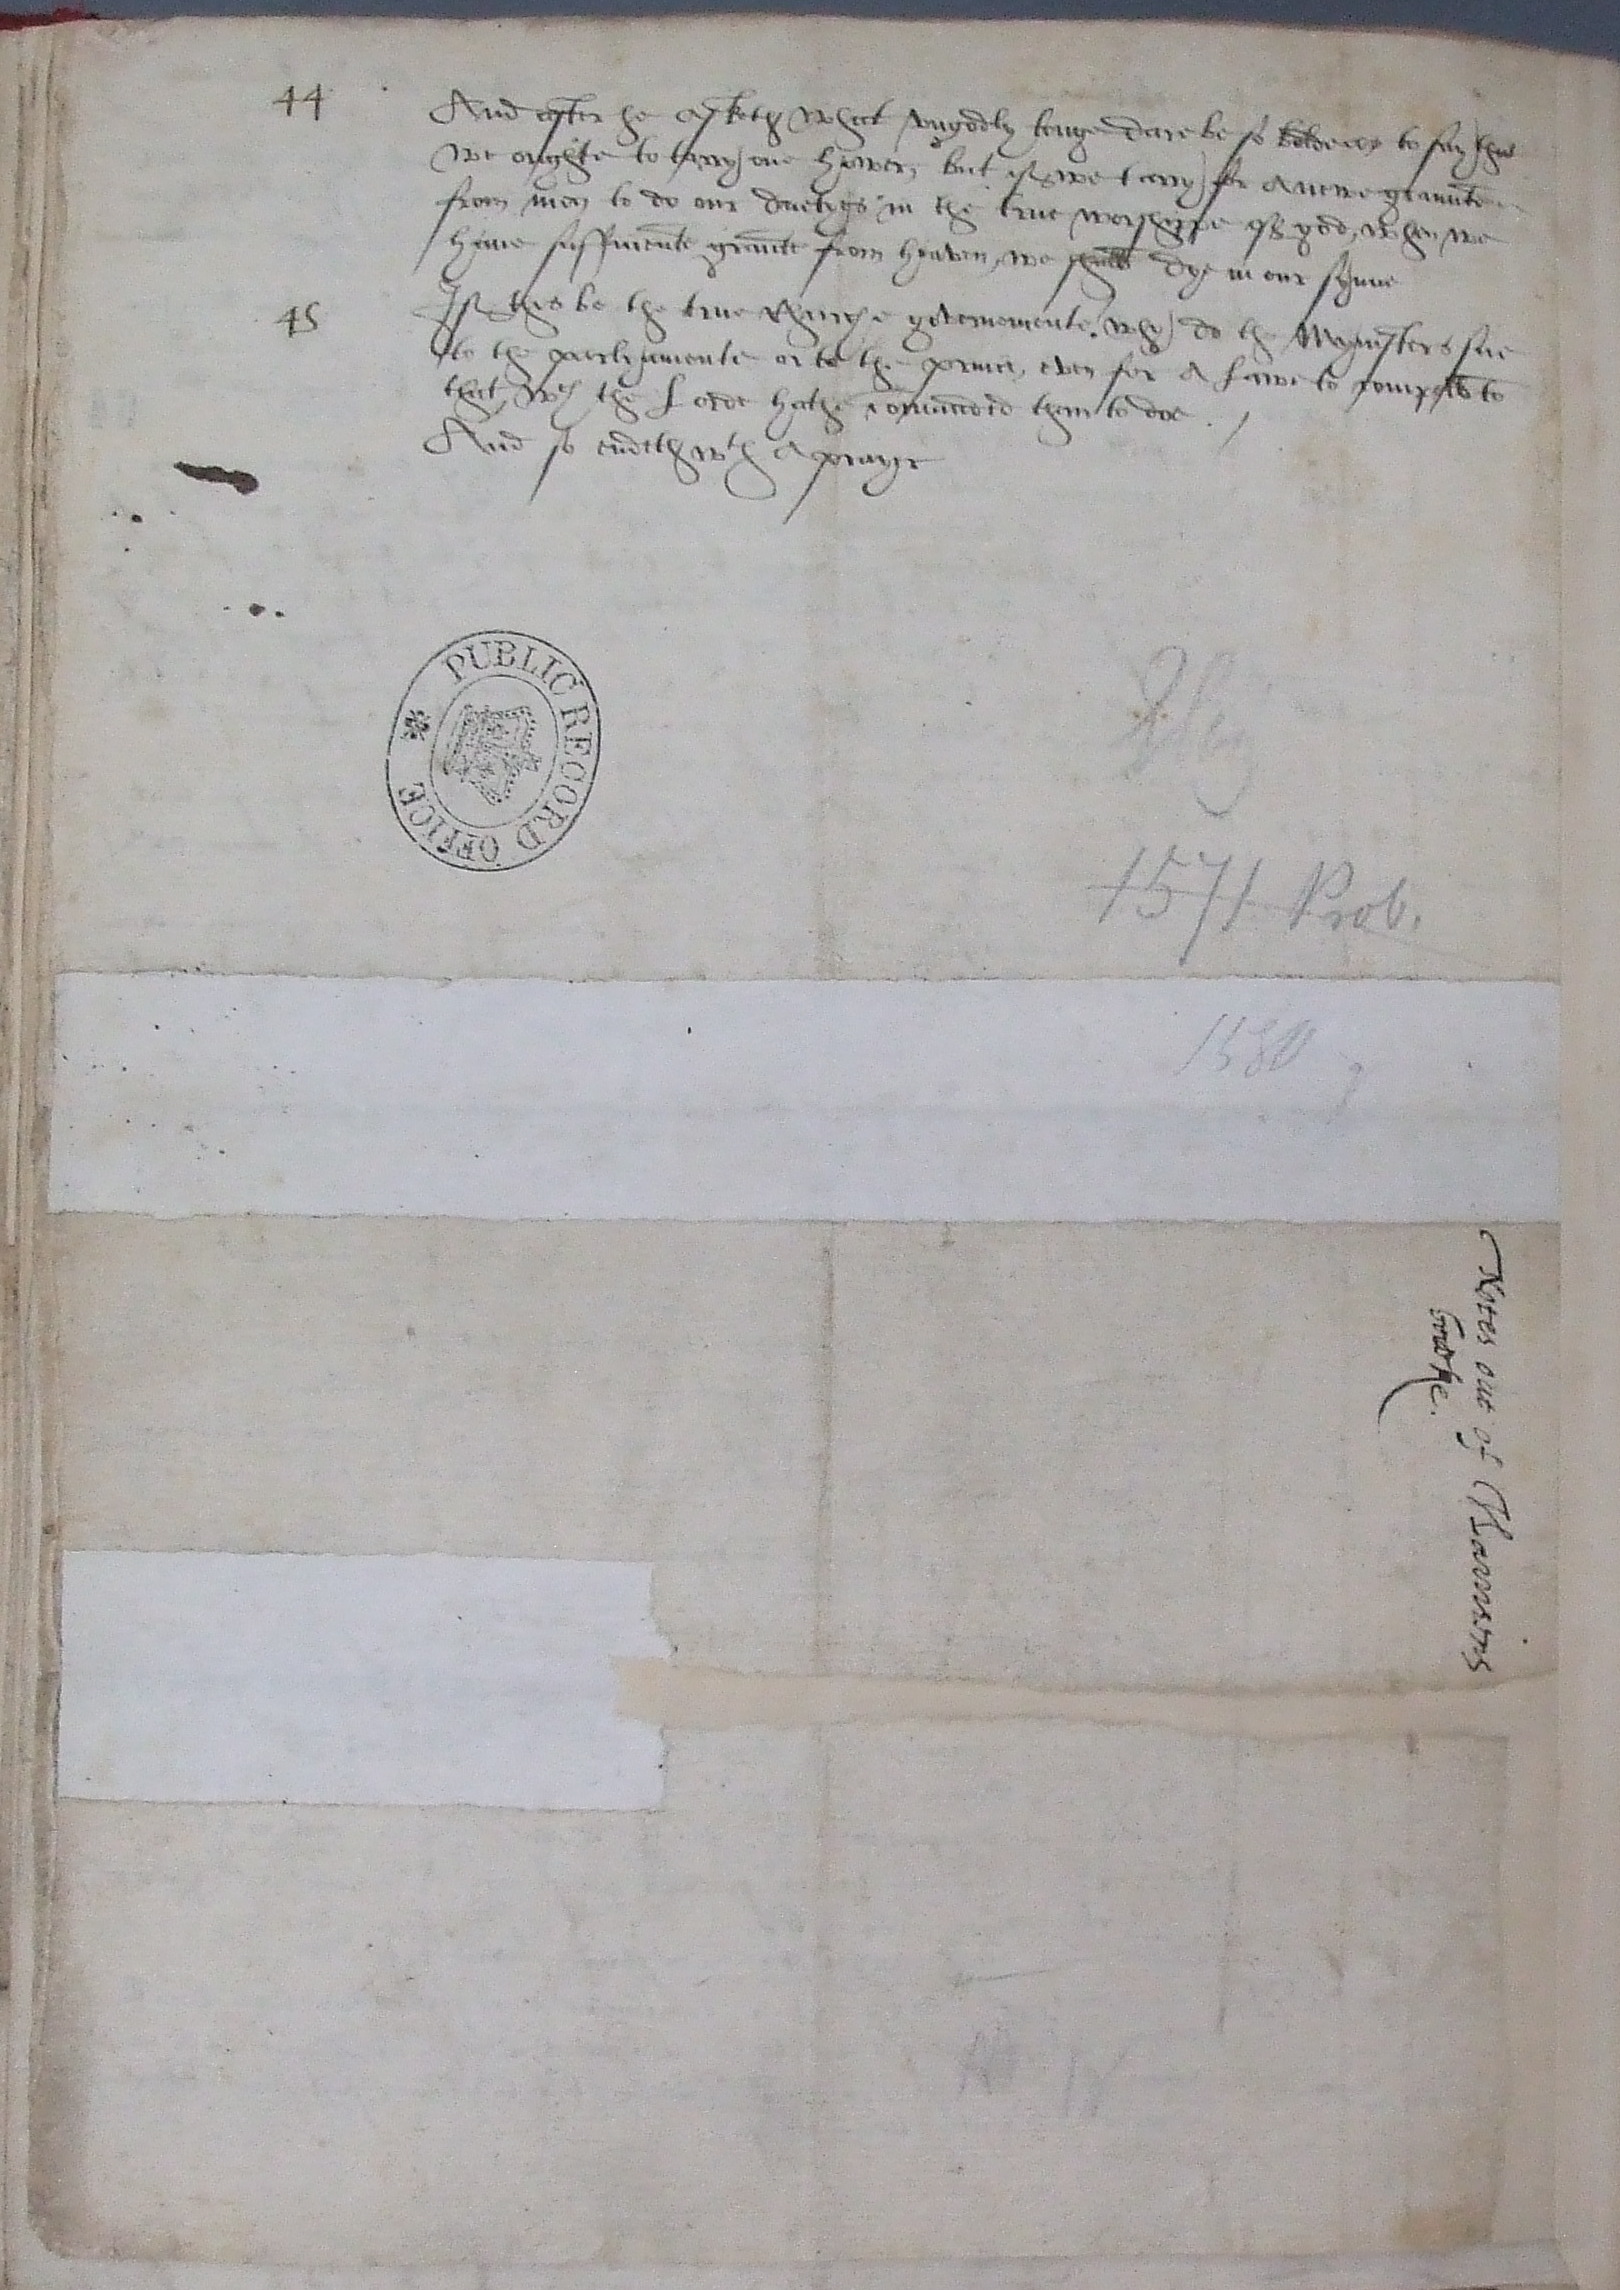 44 And after he asketh what vngodly tunge dare be so bolde as to say that
we oughte to tarry one hower, but if we tarry for a newe graunte
from men to do our duetyes in the true worshippe of god, when we
haue sufficiente graunte from heaven, we shall dye in our synne
45 If this be the true Churche governemente, why do the Mynisters sue
to the parlyamente or to the prince, even for a Lawe to compell to
that, wch the Lorde hathe comaunded them to doe .
And so endeth wth a prayer
PUBLIC RECORD OFFICE
1571 Prob.
1580 ?
Notes out of
booke.